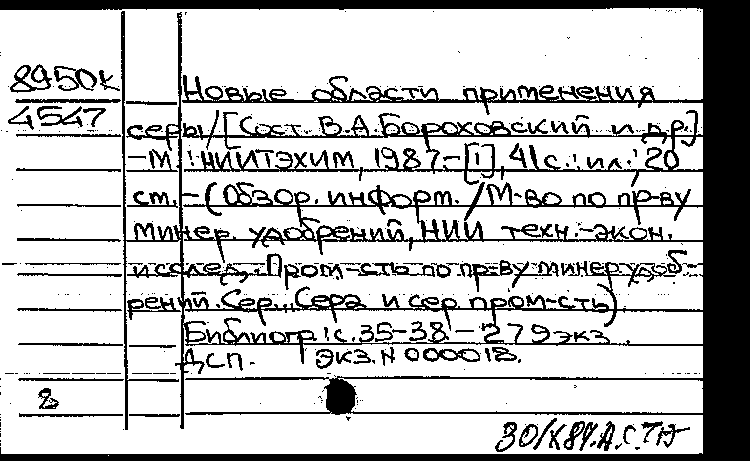 8950к
4547
Новые области применения
серы/[Сост. В.А.Бороховский и др.]
-М.:НИИТЭХИМ, 1987.-[1], 41с.:ил.; 20
см.-(Обзор. информ. /М-во по пр-ву
минер. удобрений, НИИ техн.-экон.
исслед. Пром-сть по пр-ву минер удоб-
рений. Сер., Сера и сер. пром-сть).
Библиогр.:с.35-38 - 279экз.
ДСП. ЭКЗ.N 000018.
30/X 87.